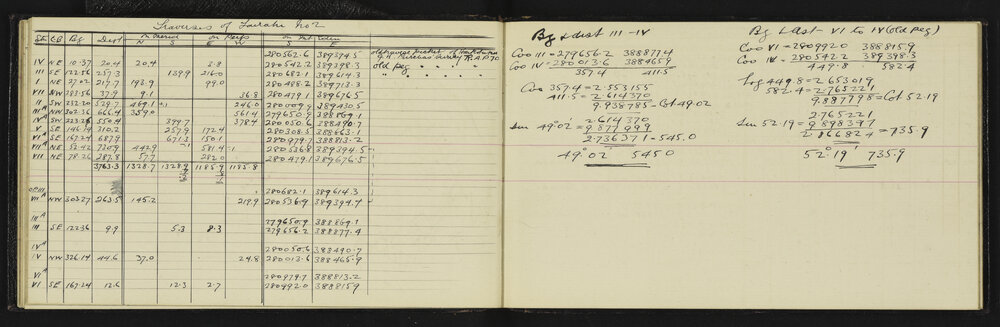 Traverses of Tairāhi No 2
on Merid on Perp on Mt Eden
SE CB Bg Dist N S E W S E
280562.6 389394.5
IV NE 10.37 20.4 20.4 3.8 280542.2 389398.3 old peg
III SE 122.56 257.3 139.9 216.0 280682.1 389614.3
I NE 27.02 217.7 193.9 99.0 280488.2 389713.3
VII NW 283.56 37.9 9.1 36.8 280479.1 389676.5
II SW 332.20 529.7 469.1 246.0 280009.9 389430.5
III A NW 302.36 666.4 359.0 561.4 279650.9 388869.1
IV A SW 223.26 550.4 399.7 378.4 280050.6 388490.7
V SE 146.14 310.2 257.9 172.4 280308.5 388663.1
VI A SE 167.24 687.9 671.2 150.1 280979.7 388813.2
VII A NE 52.42 730.9 442.9 581.4 280536.8 389394.5
VII NE 78.26 287.8 57.7 282.0 280479.1 389676.5
3763.3 1328.7 1328.9 1185.9 1185.8
280682.1 389614.3
VII A NW 303.27 263.5 145.2 219.9 280536.9 389394.4
III A 279650.9 388869.1
III SE 122.36 9.9 5.3 8.3 279656.2 388877.4
IV A 280050.6 388490.7
IV NW 326.14 44.6 37.0 24.8 280013.6 388465.9
VI A 280979.7 388813.2
VI SE 167.24 12.6 12.3 2.7 280992.0 388815.9
Bg & dist III - IV
Coo III = 279656.2 388877.4
Coo IV = 280013.6 388465.9
357.4 411.5
Cos 357.4 = 2.553155
411.5 = 2.614370
9.938785 = Cot 49.02
2.614370
Sin 49°02' = 9.877999
2.736371 = 545.0
49°02' 545.0
Bg & dist VI to IV (old peg)
Coo VI = 280992.0 388815.9
Coo IV = 280542.2 389398.3
449.8 582.4
Log 449.8 = 2.653019
582.4 = 2.765221
9.887798 = Cot 52.19
2.765221
Sin 52.19 = 9.898397
2.866824 = 735.9
52°19' 735.9